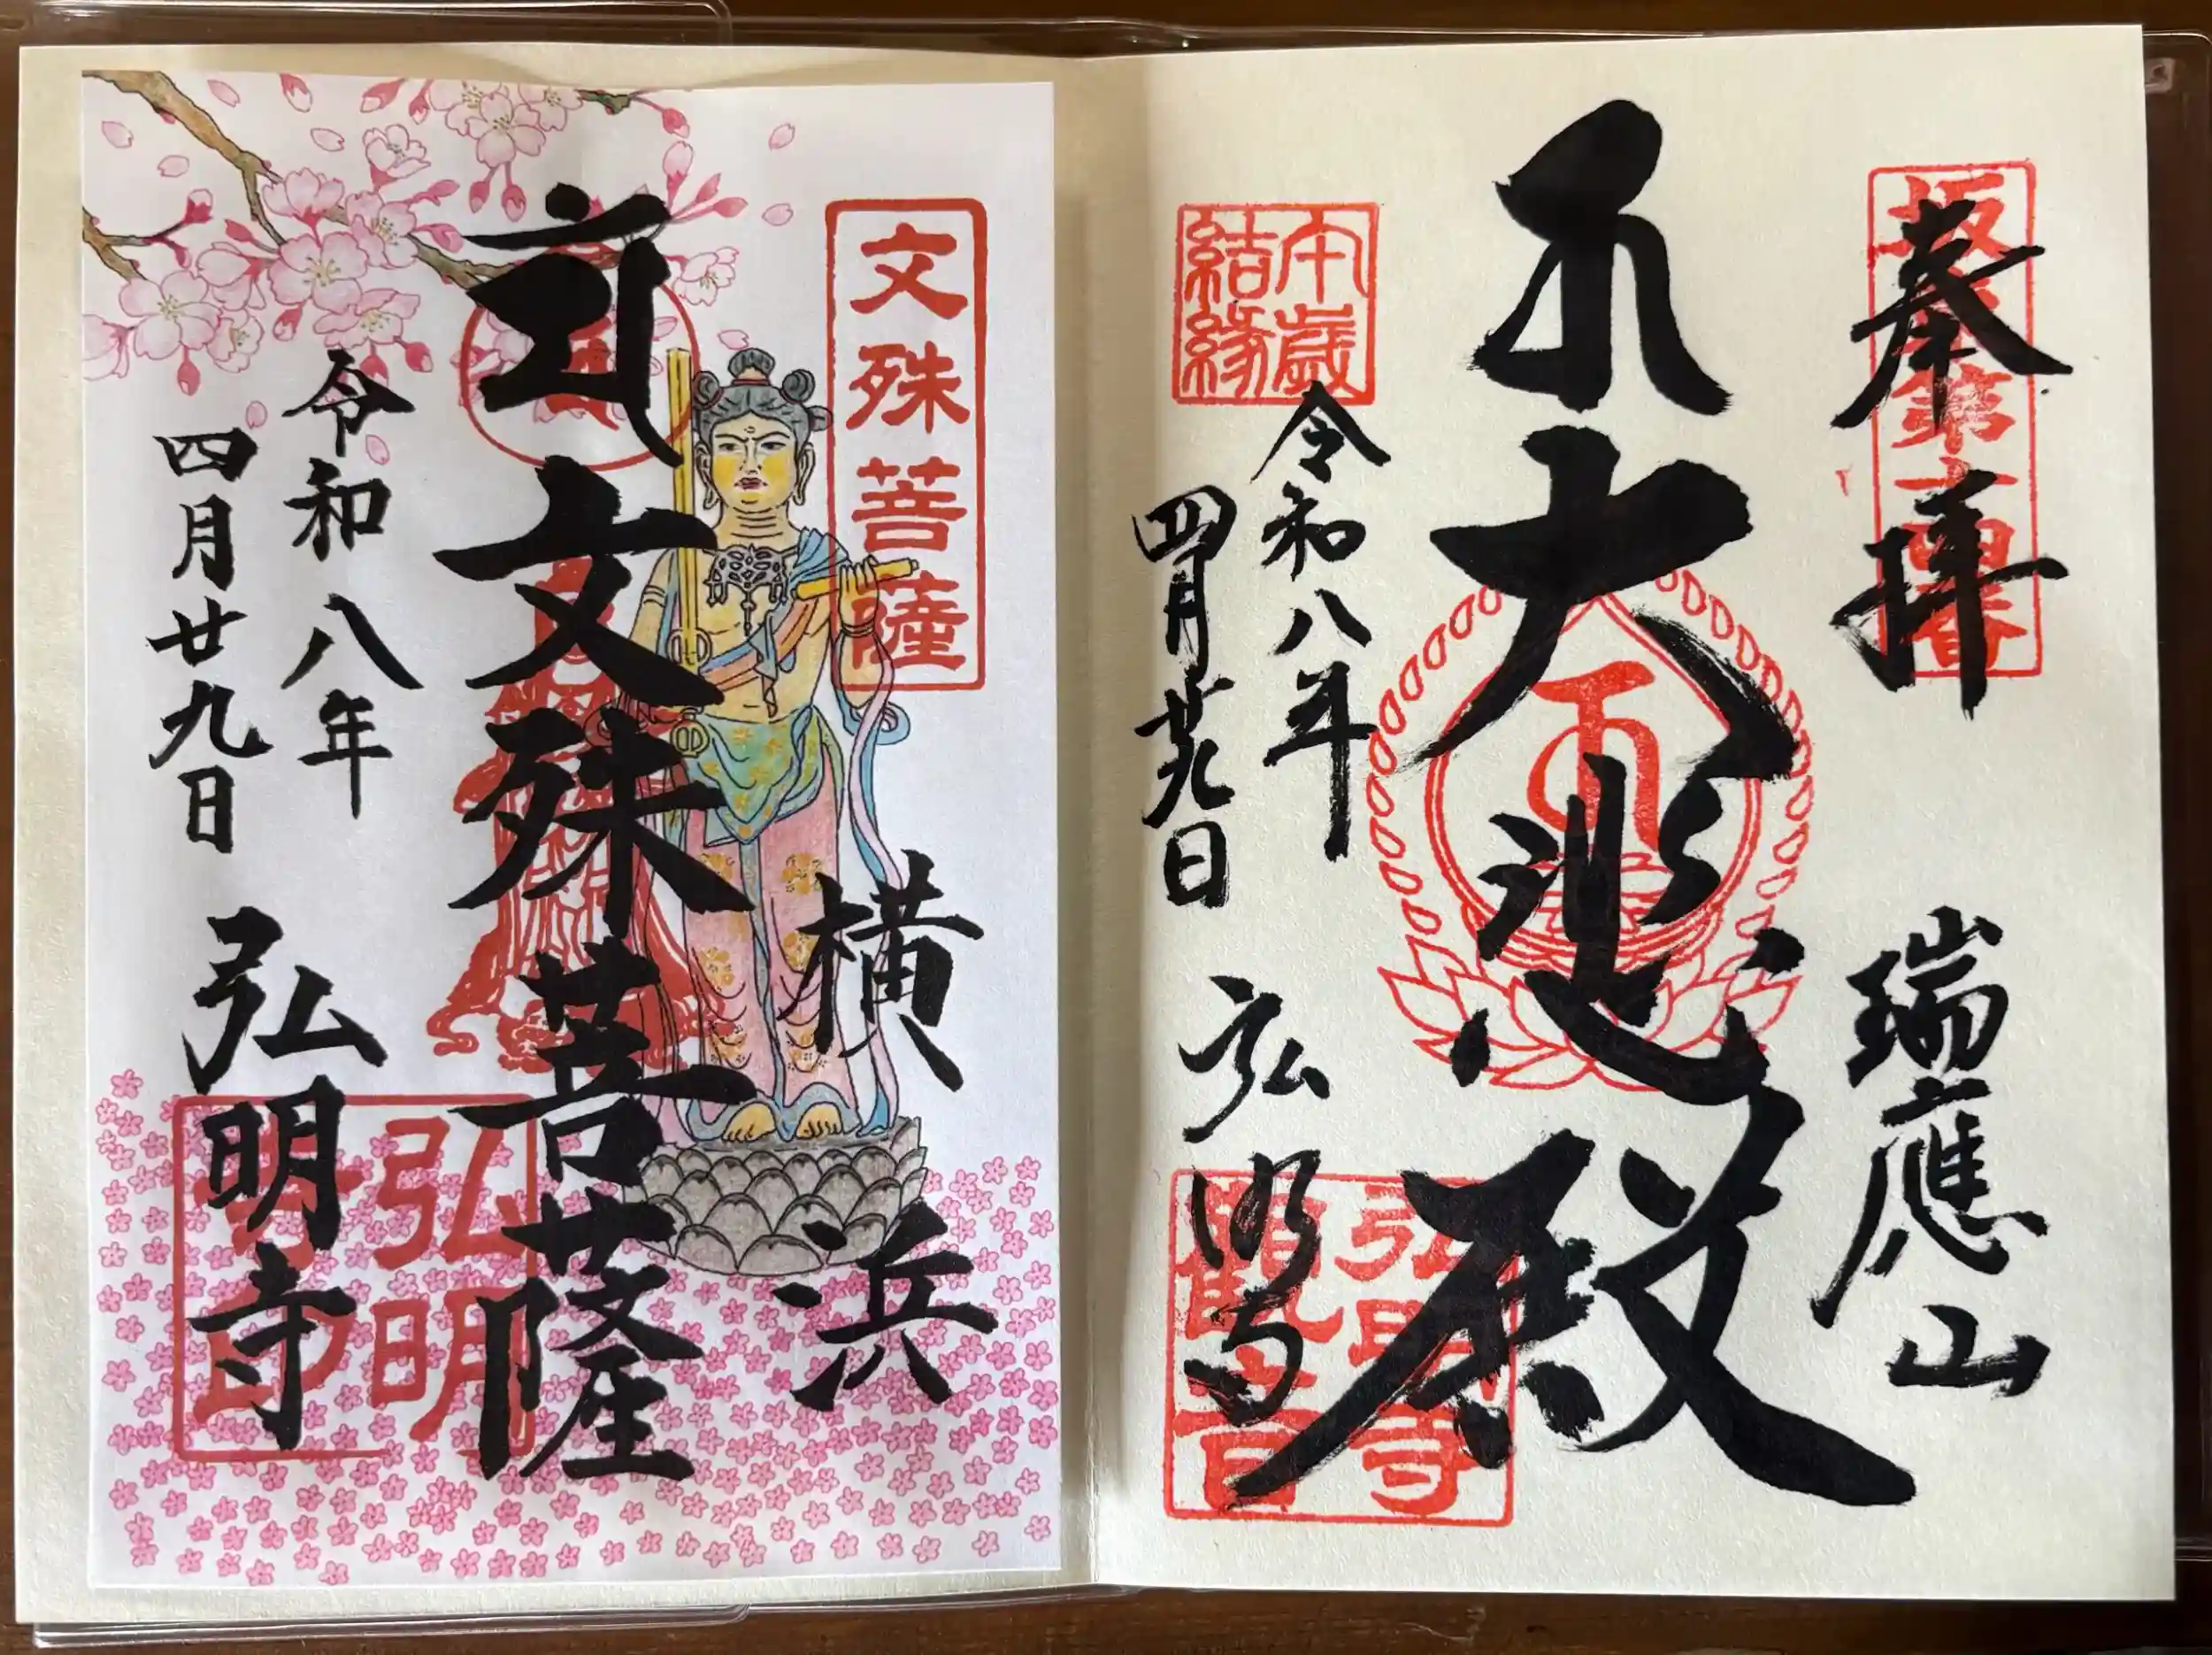 奉拝
坂東第十四番
瑞應山
大悲殿
午歳
結縁
令和八年
四月廿九日
弘明寺
弘明寺
觀音
文殊菩薩
横浜
文殊菩薩
令和八年
四月廿九日
弘明寺
弘明
寺印